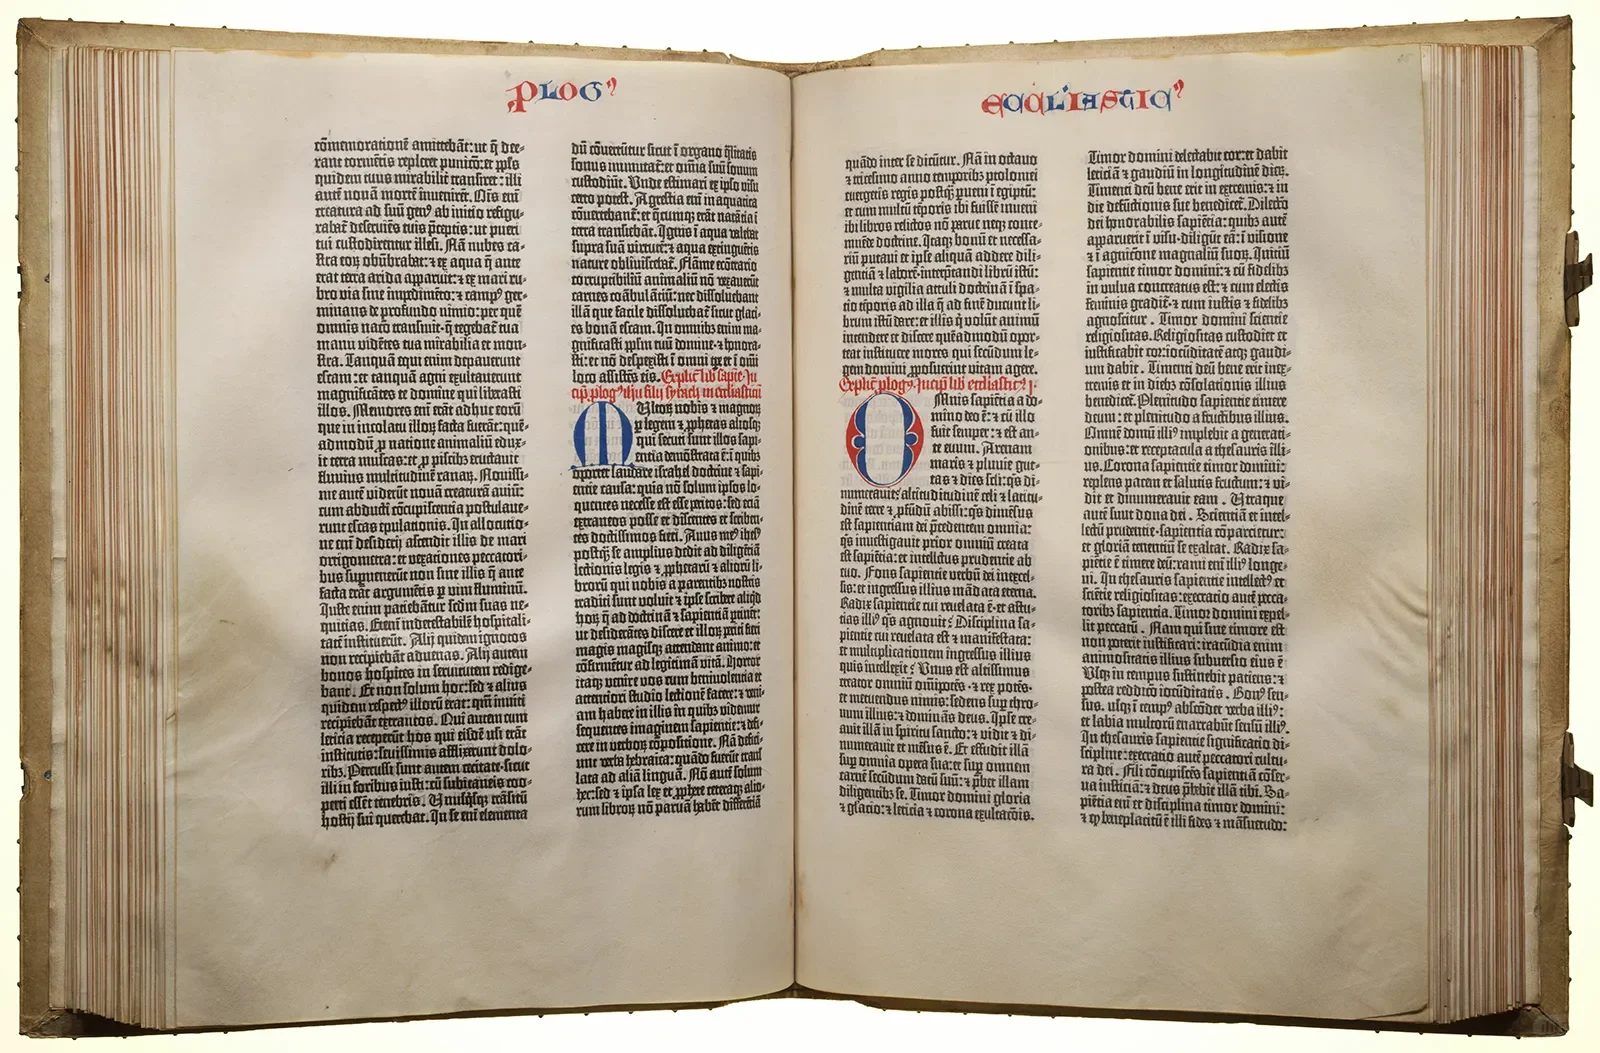 PLOGꝰ
cōmemorationē amittebāt: ut q̄ dee-
rant tormētis repleret punitō: et ppłs
quidem tuus mirabilit̄ transiret: illi
autē nouā mortē inuenirēt. Ois eni
creatura ad suū genꝰ ab initio refigu-
rabat̄ deseruiēs tuis p̄ceptis: ut pueri
tui custodirentur illesi. Nā nubes ca-
stra eoꝝ obūbrabat: ⁊ ex aqua q̄ ante
erat terra arida apparuit: ⁊ ex mari ru-
bro via sine impedimēto: ⁊ campꝰ ger-
minans de profundo nimio: per quē
omnis natō transiuit· q̄ tegebat̄ tua
manu vidētes tua mirabilia et mon-
stra. Tanquā equi enim depauerunt
escam: et tanquā agni exultauerunt
magnificātes te domine qui liberasti
illos. Memores enī erāt adhuc eorū
que in incolatu illoꝝ facta fuerāt: quē-
admodū ꝓ natione animaliū edux-
it terra muscas: et ꝓ piscibꝫ eructauit
fluuius multitudinē ranaꝝ. Nouissi-
me autē viderūt nouā creaturā auiū:
cum abducti cōcupiscentia postulaue-
runt escas epulationis. In allocutio-
ne enī desiderij ascendit illis de mari
ortigometra: et vexationes peccatori-
bus supuenerūt non sine illis q̄ ante
facta erāt argumētis ꝑ vim fluminū.
Iuste enim patiebātur scdm suas ne-
quitias. Etenī indetestabilē hospitali-
tatē instituerūt. Alij quidem ignotos
non recipiebāt aduenas. Alij autem
bonos hospites in seruitutem redige-
bant. Et non solum hoc: sed ⁊ alius
quidem respectꝰ illorū erat: qm̄ inuiti
recipiebāt extraneos. Qui autem cum
leticia receperūt hos qui eisdē usi erāt
institutis: seuissimis afflixerunt dolo-
ribꝫ. Percussi sunt autem cecitate· sicut
illi in foribus iusti: cū subitaneis coo-
perti essēt tenebris. Vnusq̄sꝗ transitū
hostij sui querebat. In se enī elementa
dū cōuertūtur sicut ī organo q̄litatis
sonus inmutat̄: et omīa suū sonum
custodiūt. Vnde estimari ex ipso visu
certo potest. Agrestia enī in aquatica
cōuertebant̄: et q̄cumqꝫ erāt natātia ī
terra transiebāt. Ignis ī aqua valebat
supra suā virtutē: ⁊ aqua extinguētis
nature obliuiscebat̄. Flāme ecōtrario
corruptibiliū animaliū nō vexauerūt
carnes coābulātiū: nec dissoluebant
illā que facile dissoluebat̄ sicut glaci-
es bonā escam. In omnibꝫ enim ma-
gnificasti ppłm tuū domine· ⁊ honora-
sti: et nō despexisti ī omni tꝑe et ī omi
loco assistēs eis. Explic̄ lib sapie· In
cip̄ plogꝰ ihu filij syrach in eccliasticū
MVltoꝝ nobis ⁊ magnoꝝ
ꝑ legem ⁊ ꝓphetas aliosꝗ
qui secuti sunt illos sapi-
entia demōstrata ē: ī quibꝫ
oportet laudare israhel doctrine ⁊ sapi-
entie causa: quia nō solum ipsos lo-
quentes necesse est esse peritos: sed etiā
extraneos posse et discentes et scriben-
tes doctissimos fieri. Auus meꝰ ihesꝰ
postq̄ se amplius dedit ad diligētiā
lectionis legis ⁊ ꝓphetarū ⁊ alioꝝ li-
broꝝ qui nobis a parentibꝫ nostris
traditi sunt voluit ⁊ ipse scribere aliqd
hoꝝ q̄ ad doctrinā ⁊ sapientiā ptinet:
ut desiderātes discere et illoꝝ pēti fieri
magis magisqꝫ attendant animo: et
cōfirmētur ad legitimā vitā. Hortor
itaqꝫ venire vos cum beniuolentia et
attentiori studio lectionē facere: ⁊ veni-
am habere in illis in quibꝫ videmur
sequentes imaginem sapientie: ⁊ defi-
cere in verboꝝ cōpositione. Nā defici-
unt verba hebraica: quādo fuerūt trans
lata ad aliā linguā. Nō autē solum
hec: sed ⁊ ipsa lex et ꝓphete ceteraqꝫ alio-
rum libroꝝ nō paruā habēt differētiā
ECCLIASTICꝰ
quādo inter se dicūtur. Nā in octauo
⁊ tricesimo anno temporibꝫ ptolomei
euergetis regis postq̄ pueni ī egiptū:
et cum multū tēporis ibi fuissē inueni
ibi libros relictos nō parue neqꝫ conte-
mnēde doctrine. Itaqꝫ bonū et necessa-
riū putaui et ipse aliquā addere dili-
gentiā ⁊ laborē· interptandi librū istū:
⁊ multa vigilia attuli doctrinā ī spa-
cio tēporis· ad illa q̄ ad finē ducunt li-
brum istū dare: et illis q̄ volūt animū
intendere et discere quēadmodū opor-
teat instituere mores qui secūdum le-
gem domini ꝓposuerint vitam agere.
Explic̄ plogꝰ. Incip̄ lib eccliasticꝰ I·
OMnis sapiētia a do-
mino deo ē: ⁊ cū illo
fuit semper: ⁊ est an-
te euum. Arenam
maris ⁊ pluuie gut-
tas ⁊ dies seclī: q̄s di-
numerauit: altitudinē celi ⁊ latitu-
dinē terre ⁊ ꝓfūdū abissi: q̄s dimēsus
est sapientiam dei p̄cedentem omnia:
q̄s inuestigauit prior omniū creata
est sapiētia: et intellectus prudentie ab
euo. Fons sapientie verbū dei in excel-
sis: et ingressus illius mādata eterna.
Radix sapientie cui reuelata ē· et astu-
tias illiꝰ q̄s agnouit? Disciplina sa-
pientie cui reuelata est ⁊ manifestata:
et multiplicationem ingressus illius
quis intellexit? Vnus est altissimus
creator omniū om̄ipotēs· ⁊ rex potēs·
et metuendus nimis: sedens sup thro-
num illius: ⁊ dominās deus. Ipse cre-
auit illā in spiritu sancto: ⁊ vidit ⁊ di-
numerauit et mēsus ē. Et effudit illā
sup omnia opera sua: et sup omnem
carnē secūdum datū suū: ⁊ p̄bet illam
diligentibꝫ se. Timor domini gloria
⁊ głacio: ⁊ leticia ⁊ corona exultatōis.
Timor domini delectabit cor: et dabit
leticiā ⁊ gaudiū in longitudinē dieꝝ.
Timenti deū bene erit in extremis: ⁊ in
die defūctionis sue benedicet̄. Dilectō
dei honorabilis sapiētia: quibꝫ autē
apparuerit ī visu· diligūt eā: ī visione
⁊ ī agnitōne magnaliū suoꝝ. Initiū
sapientie timor domini: ⁊ cū fidelibꝫ
in vulua concreatus est: ⁊ cum electis
feminis gradit̄· ⁊ cum iustis ⁊ fidelibꝫ
agnoscitur. Timor domini scientie
religiositas. Religiositas custodiet et
iustificabit cor: iocūditatē atqꝫ gaudi-
um dabit. Timenti deū bene erit· in ex-
tremis et in diebꝫ cōsolationis illius
benedicet̄. Plenitudo sapientie timere
deum: et plenitudo a fructibus illius.
Omnē domū illiꝰ implebit a generati-
onibus: et receptacula a thesauris illi-
us. Corona sapientie timor domini:
replens pacem et salutis fructum: ⁊ vi-
dit et dinumerauit eam. Vtraque
autē sunt dona dei. Scientiā et intel-
lectū prudentie· sapientia cōpartietur:
et gloriā tenentiū se exaltat. Radix sa-
piētie ē timere deū: rami enī illiꝰ longe-
ui. In thesauris sapientie intellectꝰ et
sciētie religiositas: execratio autē pecca-
toribꝫ sapientia. Timor domini expel-
lit peccatū. Nam qui sine timore est
non poterit iustificari: iracūdia enim
animositatis illius subuersio eius ē
Vsqꝫ in tempus sustinebit patiens: ⁊
postea redditō iocūditatis. Bonꝰ sen-
sus. usqꝫ ī tempꝰ abscōdet verba illiꝰ:
et labia multorū enarrabūt sensū illiꝰ
In thesauris sapientie significatio di-
scipline: execratio autē peccatori cultu-
ra dei. Fili cōcupiscēs sapientiā cōser-
ua iusticiā: ⁊ deus p̄bebit illā tibi. Sa-
piētia enī et disciplina timor domini:
⁊ qđ beneplacitū ē illi fides ⁊ māsuetudo: